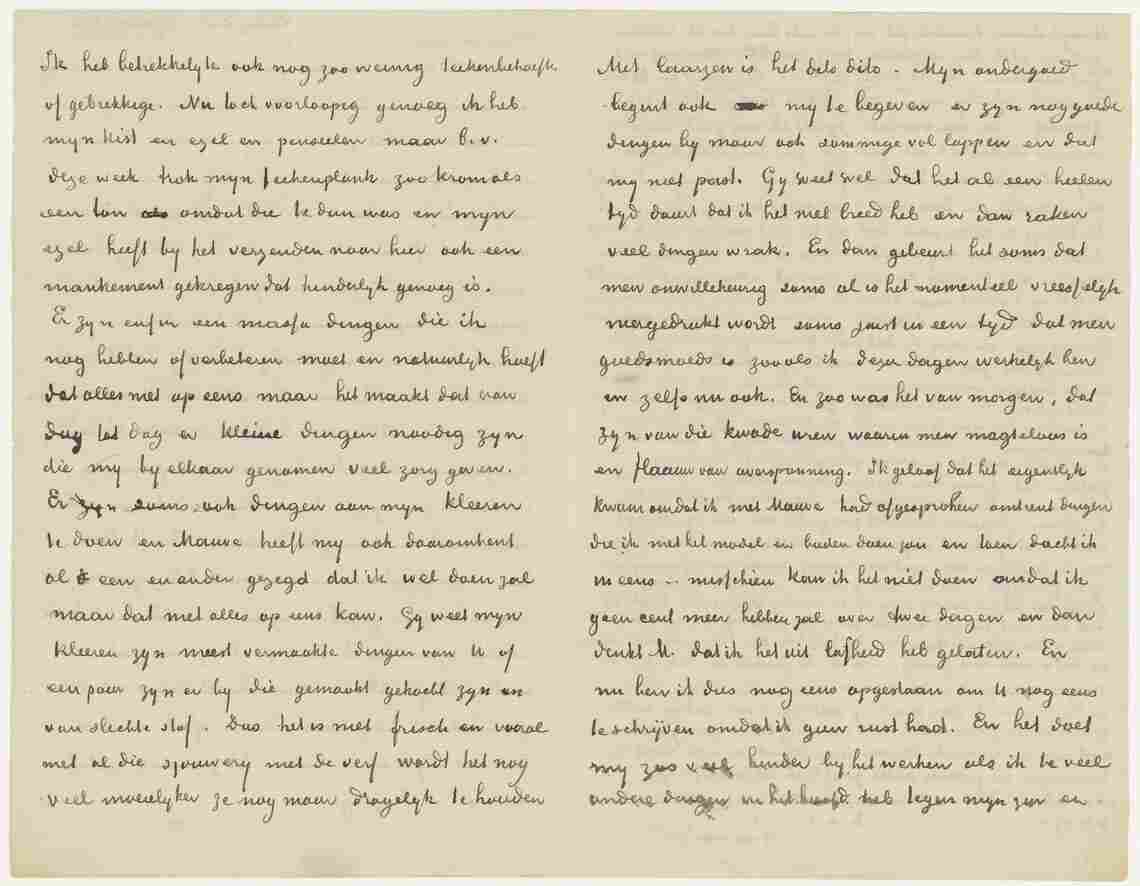 Ik heb betrekkelyk ook nog zoo weinig teekenbehoeften
of gebrekkige. Nu toch voorloopig genoeg ik heb
myn kist en ezel en penseelen maar b.v.
deze week trok myn teekenplank zoo krom als
een ton omdat die te dun was en myn
ezel heeft by het verzenden naar hier ook een
mankement gekregen dat hinderlyk genoeg is.
Er zyn enfin een massa dingen die ik
nog hebben of verbeteren moet en natuurlyk hoeft
dat alles niet op eens maar het maakt dat van
dag tot dag er kleine dingen noodig zyn
die my by elkaar genomen veel zorg geven.
Er zyn soms ook dingen aan myn kleeren
te doen en Mauve heeft my ook daaromtrent
al een en ander gezegd dat ik wel doen zal
maar dat niet alles op eens kan. Gy weet myn
kleeren zyn meest vermaakte dingen van U of
een paar zyn er by die gemaakt gekocht zyn en
van slechte stof. Dus het is niet frisch en vooral
met al die sjouwery met de verf wordt het nog
veel moeielyker ze nog maar dragelyk te houden
Met laarzen is het dito dito. Myn ondergoed
begint ook my te begeven er zyn nog goede
dingen by maar ook sommige vol lappen en dat
my niet past. Gy weet wel dat het al een heelen
tyd duurt dat ik het niet breed heb en dan raken
veel dingen wrak. En dan gebeurt het soms dat
men onwillekeurig soms al is het momenteel vreesselyk
neergedrukt wordt soms juist in een tyd dat men
goedsmoeds is zooals ik dezer dagen werkelyk ben
en zelfs nu ook. En zoo was het van morgen, dat
zyn van die kwade uren waarin men magteloos is
en flaauw van overspanning. Ik geloof dat het eigentlyk
kwam omdat ik met Mauve had afgesproken omtrent dingen
die ik met het model er buiten doen zou en toen dacht ik
in eens – misschien kan ik het niet doen omdat ik
geen cent meer hebben zal over twee dagen en dan
denkt M. dat ik het uit lafheid heb gelaten. En
nu ben ik dus nog eens opgestaan om U nog eens
te schrijven omdat ik geen rust had. En het doet
my zoo veel hinder by het werken als ik te veel
andere dingen in het hoofd heb tegen myn zin en